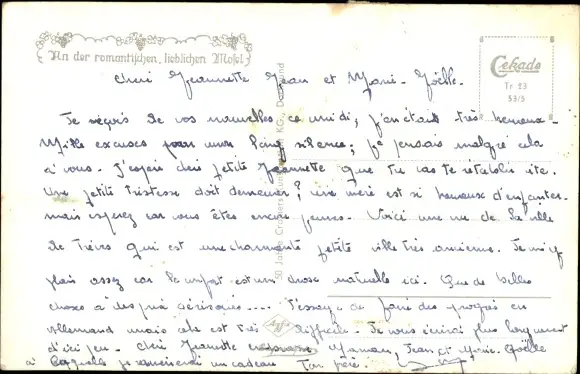 An der romantischen, lieblichen Mosel
Cekade
Tr 23
53/5
Cheri Jeannette Jean et Marie-Joëlle.
Je reçois de vos nouvelles ce midi, j'en étais très heureux.
Mille excuses pour mon long silence; je pensais malgré cela
à vous. J'espère cheri petite Jeannette que tu vas te rétablir vite.
Une petite tristesse doit demeurer? une mère est si heureuse d'enfanter.
mais espérez car vous êtes encore jeunes. Voici une vue de la ville
de Trèves qui est une charmante petite ville très ancienne. Je m'y
plais assez car le confort est une chose naturelle ici. Que de belles
choses à des prix dérisoires.... J'essaye de faire des progrès en
allemand mais cela est très difficile. Je vous écrirai plus longuement
d'ici peu. Cheri Jeannette Maman, Jean et Marie-Joëlle
à laquelle je ramènerai un cadeau Ton frère.
30 Jahre Cramers Kunstanstalt KG., Dortmund